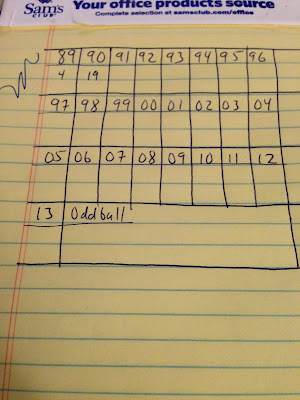 Sam's CLUB
Your office products source
Complete selection at samsclub.com/office
89 90 91 92 93 94 95 96
4 19
97 98 99 00 01 02 03 04
05 06 07 08 09 10 11 12
13 Oddball